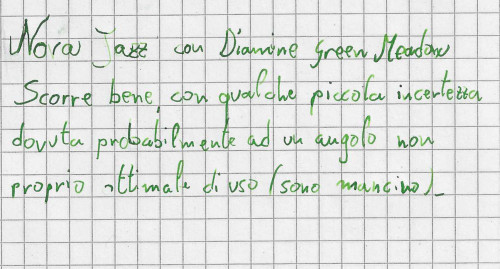 Nora Jazz con Diamine Green Meadow
Scorre bene, con qualche piccola incertezza
dovuta probabilmente ad un angolo non
proprio ottimale di uso (sono mancino)_